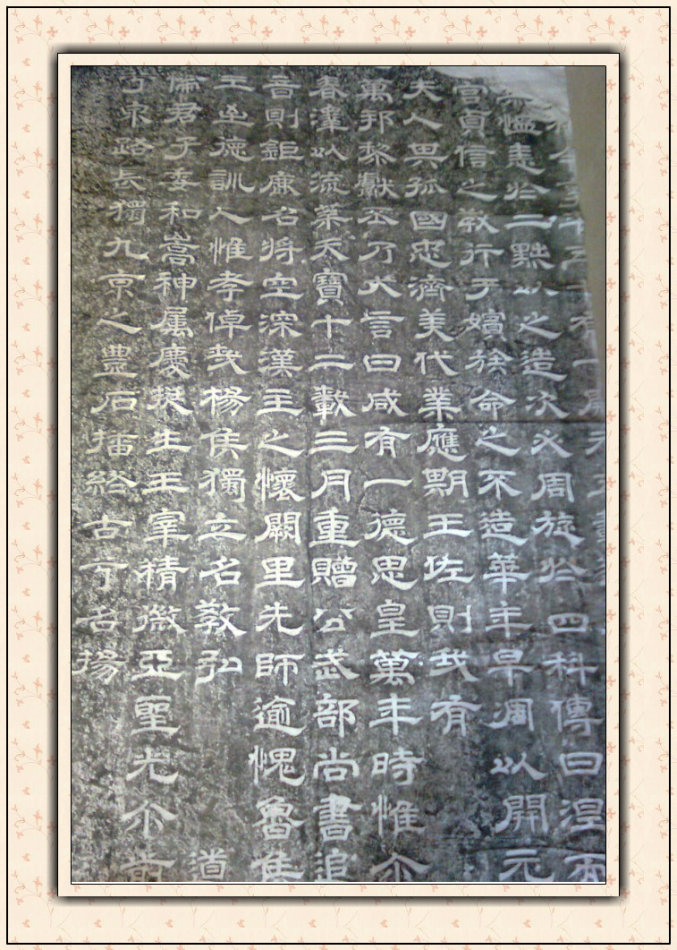 享年五十有一
慍憲於二點以之造次必周旋於四科傳曰涅而
官貞信之教行于嬪族命之不造華年早凋以開元
夫人畏孤國忠濟美代業應期王佐則我有
萬邦黎獻丕乃大言曰咸有一德思皇萬年時惟尒
春澤以流葉天寶十二載三月重贈公武部尚書追
音則鉅鹿名將空深漢主之懷闕里先師逾愧魯侯
德訓人惟孝倬我楊侯獨立名教弘道
儒君子委和嵩神属慶挺生王宰精微亞聖光尒前
路長獨九京之豊石播終古兮名揚